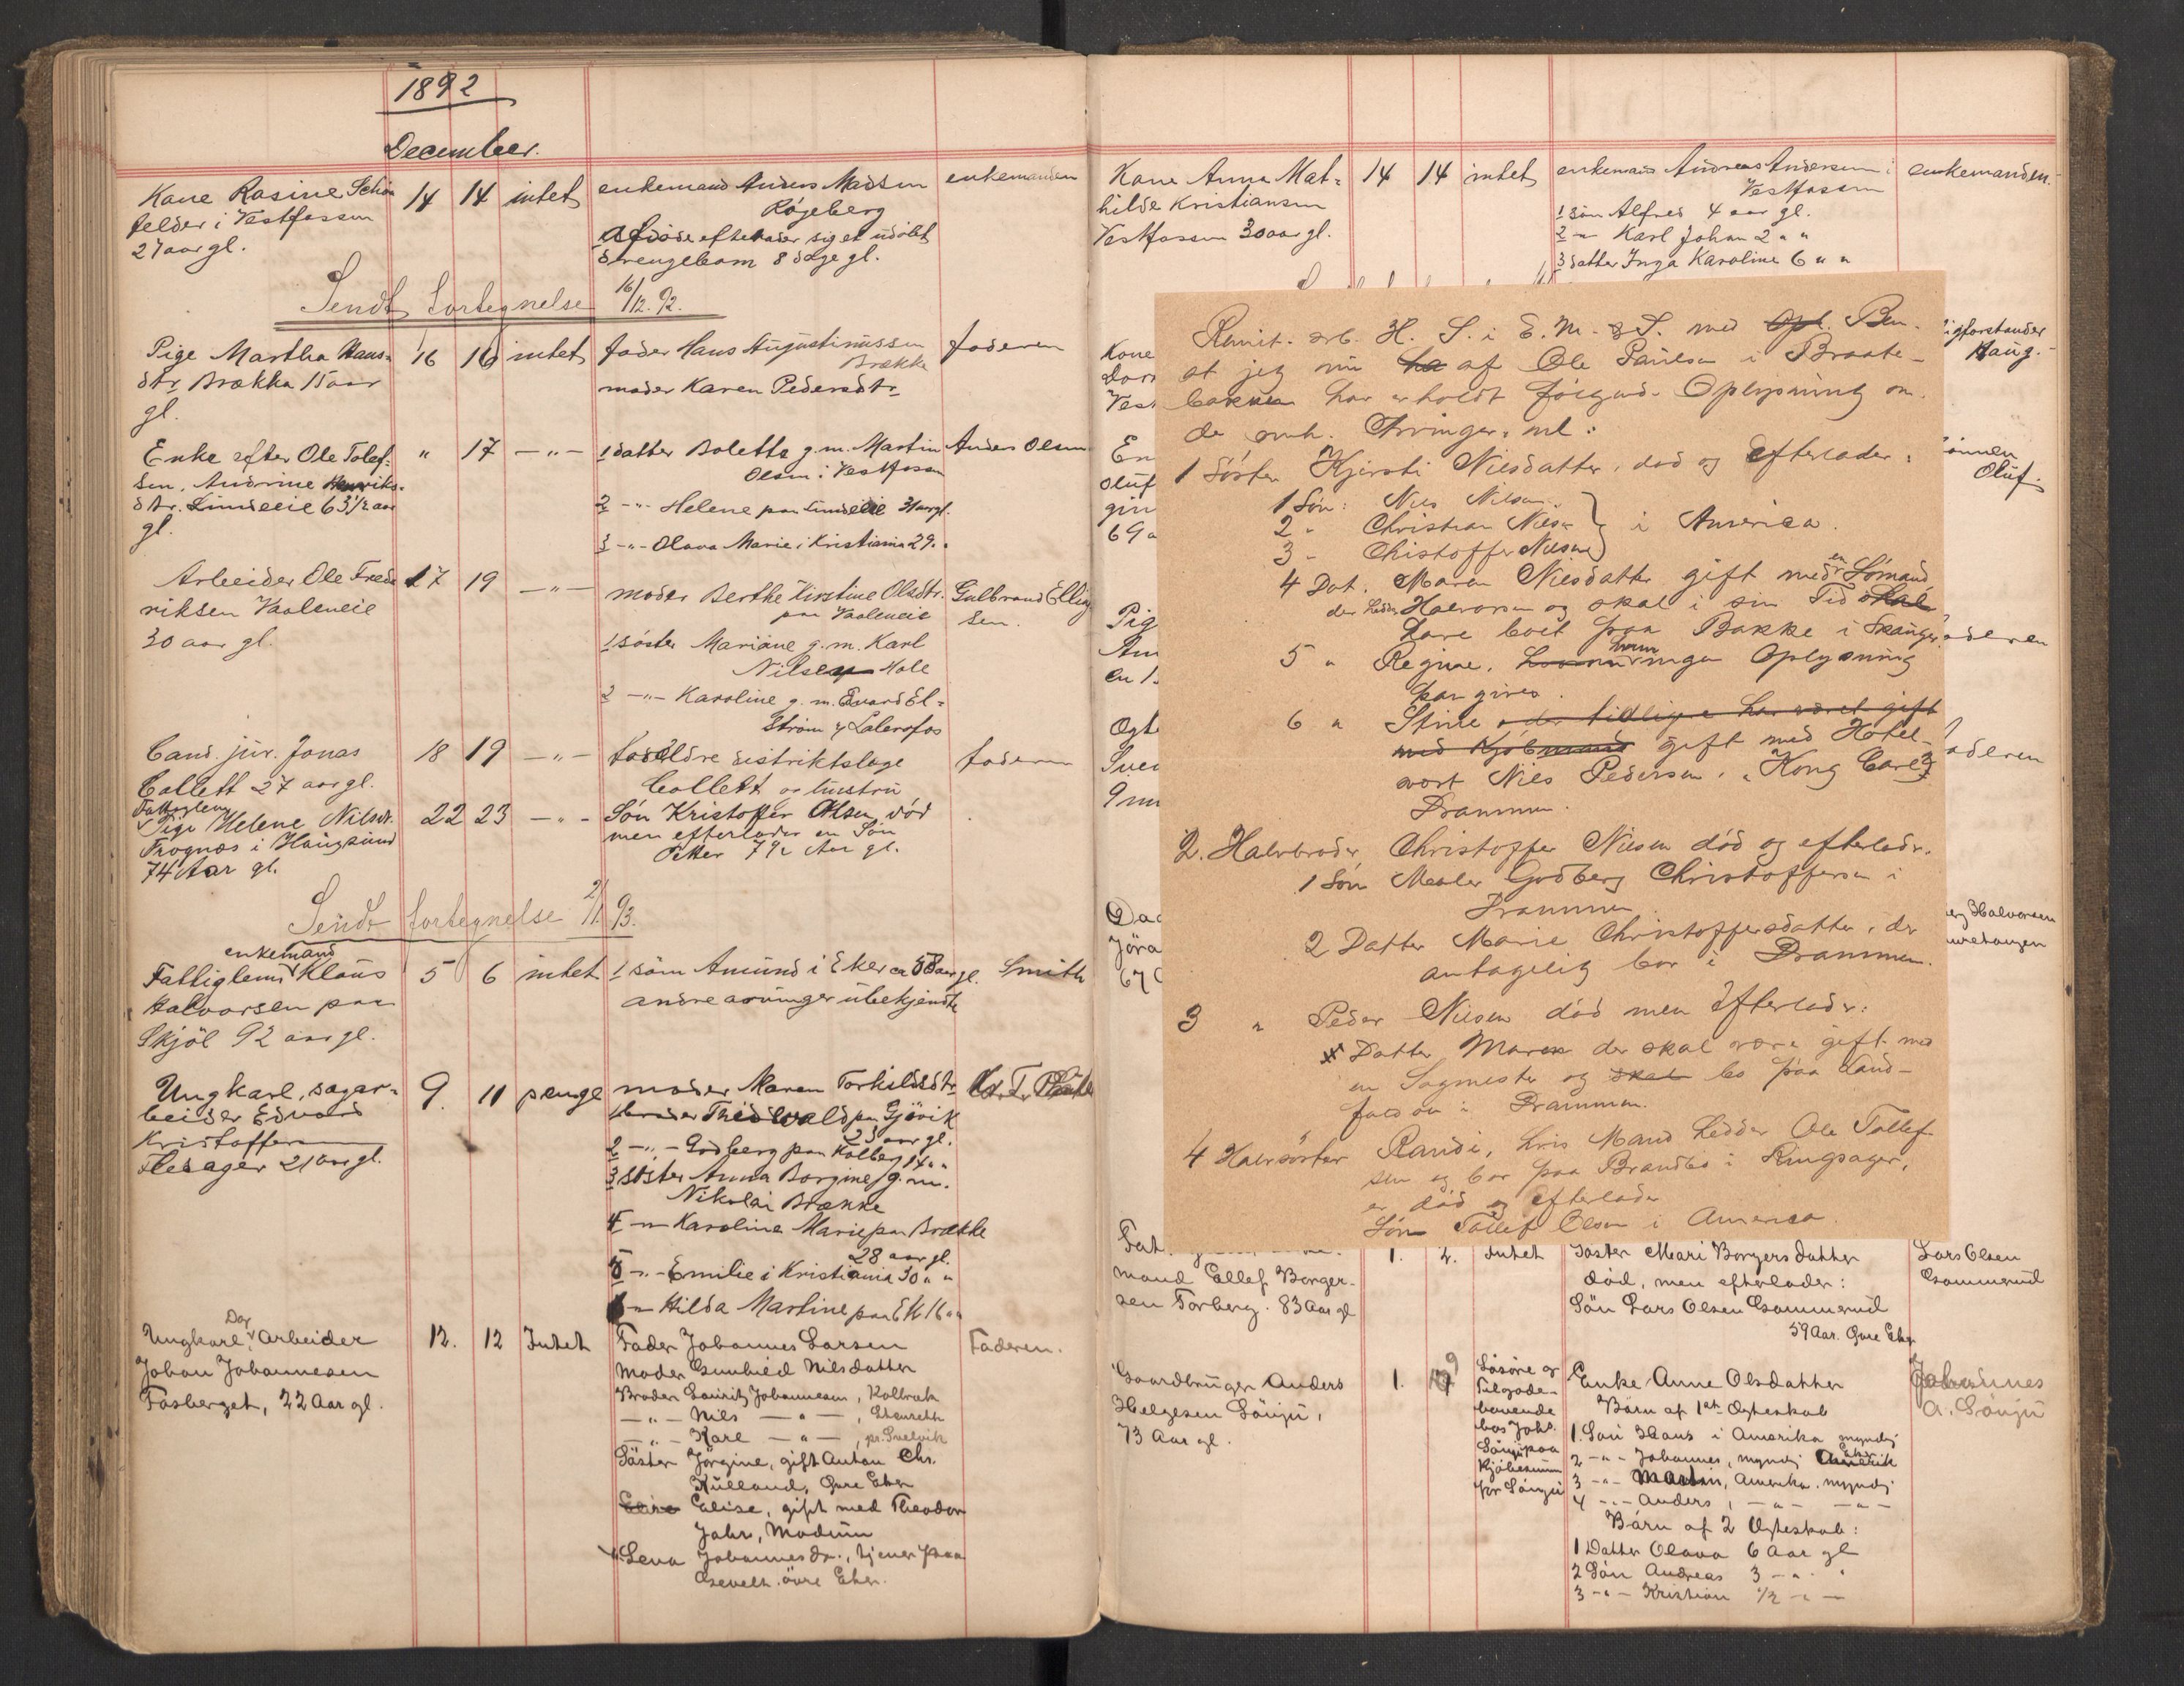 1892
December.
Kone Rosine Schön
felder i Vestfossen
27 aar gl.
14 14 intet
enkemand Anders Madsen
Røgeberg
Afdøde efterlader sig et udøbt
drengebarn 8 dage gl.
enkemanden
Sendt fortegnelse 16/12. 92.
Pige Martha Hans-
dtr. Brække 15 aar
gl.
16 16 intet
fader Hans Augustinussen
Brække
moder Karen Pedersdtr.
faderen
Enke efter Ole Tolef-
sen, Andrine Henriks-
dtr. Lindseie 63 1/2 aar
gl.
" 17 -"-
1 datter Bolette g. m. Martin
Olsen i Vestfossen
2 -"- Helene paa Lindseie 31 aar gl.
3 -"- Olava Marie i Kristiania 29. "
Anders Olsen
Arbeider Ole Fred-
riksen Vaaleneie
30 aar gl.
17 19 -"-
moder Berthe Kirstine Olsdtr.
paa Vaaleneie
1 søster Mariane g. m. Karl
Nilsen Hole
2 -"- Karoline g. m. Evard El-
strøm
Gulbrand Elling
sen.
Cand. jur. Jonas
Collett 27 aar gl.
18 19 -"-
forældre distriktslæge
Collett og hustru
faderen
Fattiglem
Pige Helene Nilsdr.
Frognæs i Haugsund
74 Aar gl.
22 23 -"-
Søn Kristoffer Olsen død
men efterlader en Søn
Petter 7 1/2 Aar gl.
Sendt fortegnelse 2/1. 93.
enkemand
Fattiglem Klaus
Halvorsen paa
Skjøl 92 aar gl.
5 6 intet
1 søn Amund i Eker ca 58 aar gl.
andre arvinger ubekjendte
Smith
Ungkarl, sagar-
beider Edvard
Kristoffersen
Flesager 21 aar gl.
9. 11 penge
moder Maren Torkildsdtr.
1 broder Thidevald paa Gjøvik
23 aar gl.
2 -"- Godberg paa Kolberg 14 " "
3 søster Anna Borgine g. m.
Nikolai Brække
4 -"- Karoline Marie paa Brække
28 aar gl.
5 -"- Emilie i Kristiania 30 " "
6 -"- Hilda Martine paa Ek 16 " "
Dag
Ungkarl, Arbeider
Johan Johannesen
Fosberget, 22 Aar gl.
12. 12 Intet
Fader Johannes Larsen
Moder Gunhild Nilsdatter
Broder Lauritz Johannesen, Kolbræk
-"- Nils -"- ,
-"- Karl -"- , pr. Svelvik
Søster Jørgine, gift Anton Chr.
Kulland, Øvre Eker
Elise Elise, gift med Theodor
Jahr, Modum
" Lena Johannesdr., tjener paa
øvre Eker.
Faderen.
Kone Anna Mat-
hilde Kristiansen
Vestfossen 30 aar gl.
14 14 intet
enkemand Andreas Andersen i
Vestfossen
1 søn Alfred 4 aar gl.
2 -"- Karl Johan 2 " "
3 datter Inga Karoline 6 " "
enkemanden.
Kone
Vest
En
Oluf
69 a
Pig
Ogt
Sven
9
Jøra
67
Haug.
Oluf.
faderen
faderen
Halvorsen
Remit. H. S. i E. M. & S. med Opl. Bem.
at jeg nu ha af Ole Paulsen i Braate-
bakken har erholdt følgend. Oplysning om
de Arvinger. nl:
1 Søster Kjersti Nilsdatter, død og efterlader:
1 Søn: Nils Nilsen
2 " Christian Nilsen } i America.
3 - Christoffer Nilsen
4 Dat. Maren Nilsdatter gift med en Sømand,
der hedder Halvorsen og skal i sin Tid skal
have boet paa Bakke i Skauger.
5 " Regine, hvorom ingen Oplysning
kan gives.
6 " Stine der tidligere har været gift
med Kjøbmand gift med Hotel-
vært Nils Pedersen, "Kong Carl",
Drammen.
2. Halvbroder, Christoffer Nilsen død og efterladr.
1 Søn Maaler Godberg Christoffersen i
Drammen.
2 Datter Marie Christoffersdatter, der
antagelig bor i Drammen.
3 " Peder Nilsen død men efterladr:
Datter Maren der skal være gift med
en Sagmester og skal bo paa Land-
faldøen i Drammen.
4 Halvsøster Randi, hvis Mand hedder Ole Tollef-
sen og bor paa Brandbo i Ringsager,
er død og efterlader
Søn Tollef Olsen i America.
mand Ellef Borger-
sen Forberg. 83 Aar gl
1. 2. Intet
Søster Mari Borgersdatter
død, men efterlader:
Søn Lars Olsen Gommerud
59 Aar. Øvre Eker
Lars Olsen
Gommerud
Gaardbruger Anders
Helgesen Lönju,
73 Aar gl.
1. 9
Løsøre og
Tilgode-
havende
hos Johs
Lönju paa
Kjøbesum
for Lönju
Enke Anne Olsdatter
Børn af 1st Ægteskab
1. Søn Hans i Amerika myndig
2 -"- Johannes, myndig Eker
3 -"- Martin, Amerika, myndig
4 -"- Anders, -"- -"-
Børn af 2 Ægteskab:
1 Datter Olava 6 Aar gl
2 Søn Andreas 3 -"- "
3 -"- Kristian 1/2 -"-
Johannes
A. Lönju